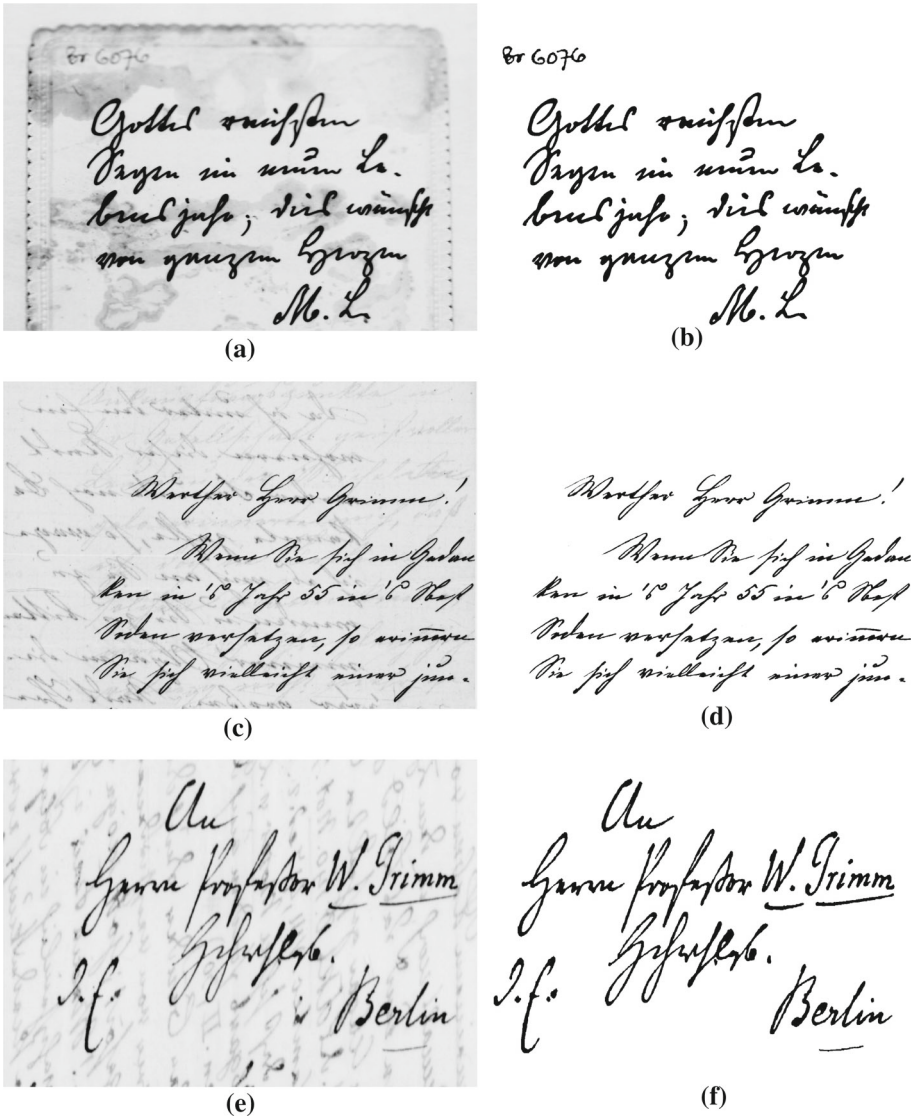 Br 6076
Gottes reichsten
Segen im neuen Le-
bensjahr; dies wünscht
von ganzem Herzen
M. L.
(a)
Br 6076
Gottes reichsten
Segen im neuen Le-
bensjahr; dies wünscht
von ganzem Herzen
M. L.
(b)
Werther Herr Grimm!
Wenn Sie sich in Gedan
ken in's Jahr 55 in's Bad
Soden versetzen, so erinnern
Sie sich vielleicht einer jun-
(c)
Werther Herr Grimm!
Wenn Sie sich in Gedan
ken in's Jahr 55 in's Bad
Soden versetzen, so erinnern
Sie sich vielleicht einer jun-
(d)
An
Herrn Professor W. Grimm
Berlin
(e)
An
Herrn Professor W. Grimm
Berlin
(f)